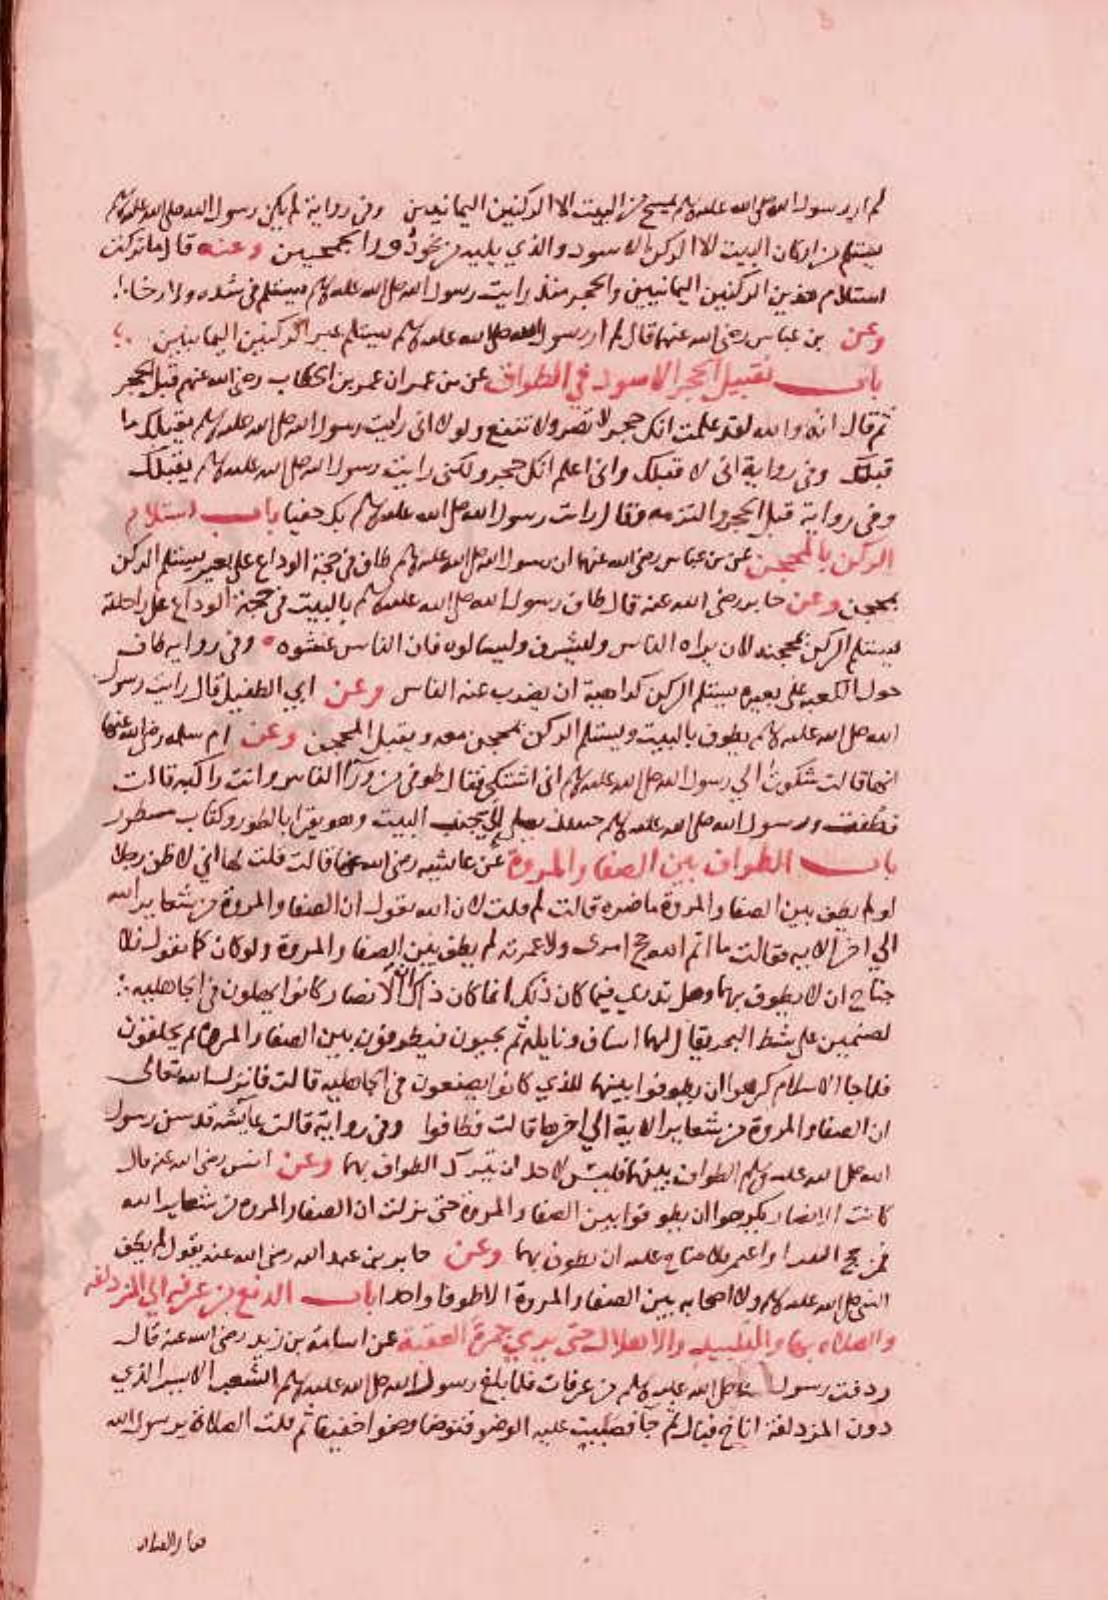 لم ار رسول الله صلى الله عليه وسلم يمسح من البيت الا الركنين اليمانيين وفي رواية لم يكن رسول الله صلى الله عليه وسلم
يستلم من اركان البيت الا الركن الاسود والذي يليه من نحو دور الجمحيين وعنه قال ما تركت
استلام هذين الركنين اليمانيين والحجر منذ رايت رسول الله صلى الله عليه وسلم يستلم في شده ولا رخا
وعن بن عباس رضي الله عنهما قال لم ار رسول الله صلى الله عليه وسلم يستلم غير الركنين اليمانيين
باب تقبيل الحجر الاسود في الطواف عن بن عمر ان عمر بن الخطاب رضي الله عنهم قبل الحجر
ثم قال انه والله لقد علمت انك حجر لا تضر ولا تنفع ولولا اني رايت رسول الله صلى الله عليه وسلم يقبلك ما
قبلتك وفي رواية اني لا قبلك واني اعلم انك حجر ولكني رايت رسول الله صلى الله عليه وسلم يقبلك
وفي رواية قبل الحجر والتزمه وقال رايت رسول الله صلى الله عليه وسلم بك حفيا باب استلام
الركن بالمحجن عن بن عباس رضي الله عنهما ان رسول الله صلى الله عليه وسلم طاف في حجة الوداع على بعير يستلم الركن
بمحجن وعن جابر رضي الله عنه قال طاف رسول الله صلى الله عليه وسلم بالبيت في حجة الوداع على راحلته
يستلم الركن بمحجنه لان يراه الناس وليشرف وليسالوه فان الناس غشوه وفي رواية طاف
حول الكعبه على بعيره يستلم الركن كراهية ان يضرب عنه الناس وعن ابي الطفيل قال رايت رسول
الله صلى الله عليه وسلم يطوف بالبيت ويستلم الركن بمحجن معه ويقبل المحجن وعن ام سلمه رضي الله عنها
انها قالت شكوت الي رسول الله صلى الله عليه وسلم اني اشتكي فقال طوفي من ورآ الناس وانت راكبه قالت
فطفت ورسول الله صلى الله عليه وسلم حينئذ يصلي الي جنب البيت وهو يقرا بالطور وكتاب مسطور
باب الطواف بين الصفا والمروة عن عايشه رضي الله عنها قالت قلت لها اني لاظن رجلا
لو لم يطف بين الصفا والمروة ما ضره قالت لم قلت لان الله يقول ان الصفا والمروة من شعاير الله
الي اخر الايه فقالت ما اتم الله حج امرى ولا عمرته لم يطف بين الصفا والمروة ولو كان كما تقول فلا
جناح ان لا يطوف بهما وهل تدري فيما كان ذلك انما كان ذاك ان الانصار كانوا يهلون في الجاهليه
لصنمين على شط البحر يقال لهما اساف ونايله ثم يجيون فيطوفون بين الصفا والمروه ثم يحلقون
فلما جا الاسلام كرهوا ان يطوفوا بينهما للذي كانوا يصنعون في الجاهليه قالت فانزل الله تعالى
ان الصفا والمروة من شعاير الاية الي اخرها قالت فطافوا وفي رواية قالت عايشه قد سن رسول
الله صلى الله عليه وسلم الطواف بينهما فليس لاحد ان يترك الطواف بهما وعن انس رضي الله عنه قال
كانت الانصار يكرهوا ان يطوفوا بين الصفا والمروة حتى نزلت ان الصفا والمروه من شعاير الله
فمن حج البيت او اعتمر فلا جناح عليه ان يطوف بهما وعن جابر بن عبد الله رضي الله عنه يقول لم يطف
النبي صلى الله عليه وسلم ولا اصحابه بين الصفا والمروة الا طوفا واحدا باب الدفع من عرفه الي المزدلفه
والصلاه بها والتلبيه والاهلال حتى يرمي جمرة العقبة عن اسامة بن زيد رضي الله عنه قال
ردفت رسول الله صلى الله عليه وسلم من عرفات فلما بلغ رسول الله صلى الله عليه وسلم الشعب الايسر الذي
دون المزدلفة اناخ فبال ثم جآ فصببت عليه الوضو فتوضا وضوا خفيفا ثم قلت الصلاة يرسول الله